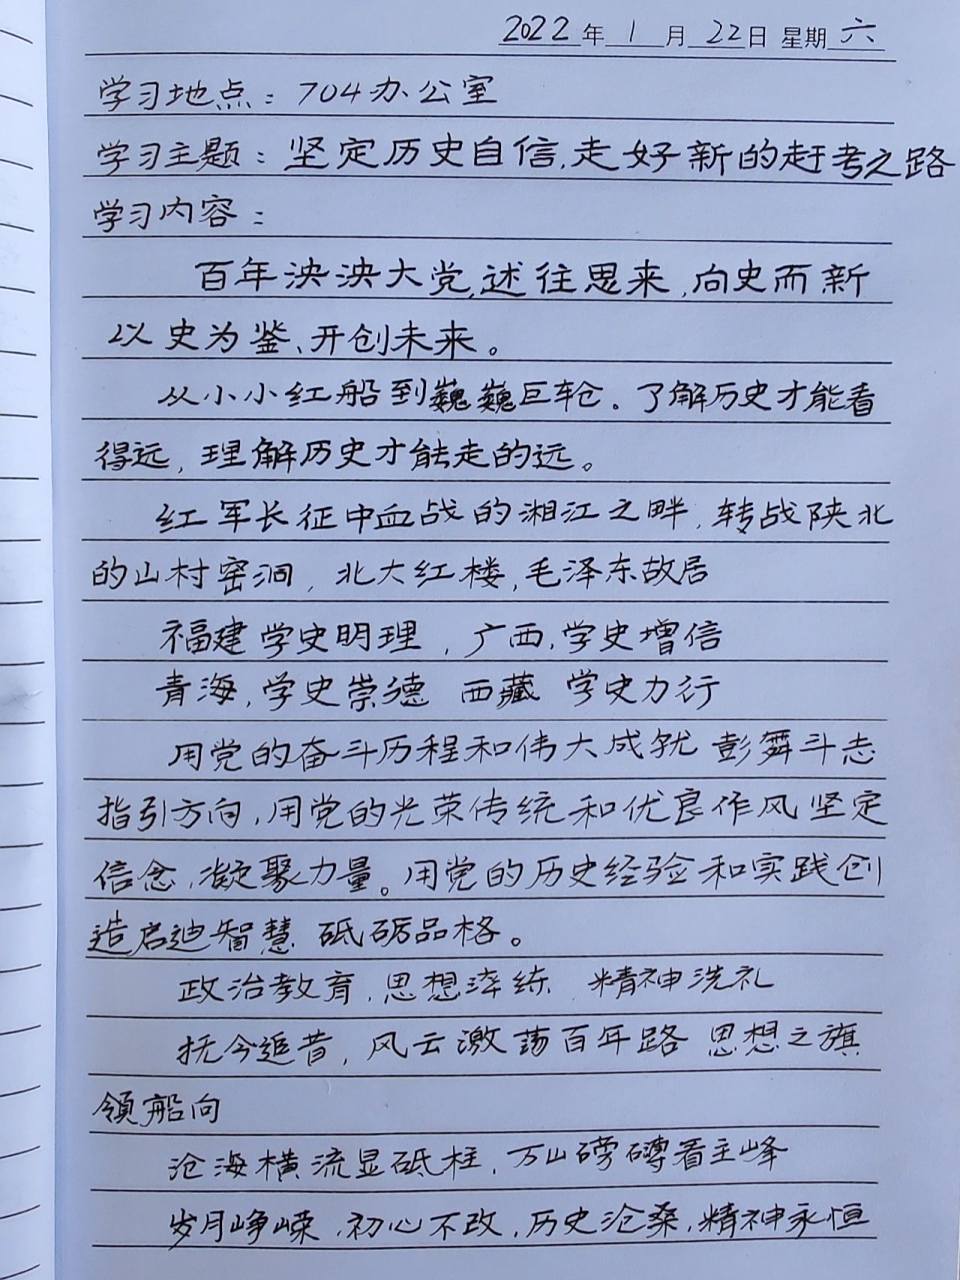 2022年1月22日 星期六
学习地点：704办公室
学习主题：坚定历史自信,走好新的赶考之路
学习内容：
百年泱泱大党,述往思来,向史而新
以史为鉴、开创未来。
从小小红船到巍巍巨轮。了解历史才能看
得远,理解历史才能走的远。
红军长征中血战的湘江之畔,转战陕北
的山村窑洞,北大红楼,毛泽东故居
福建学史明理,广西,学史增信
青海,学史崇德 西藏 学史力行
用党的奋斗历程和伟大成就 彭舞斗志
指引方向,用党的光荣传统和优良作风坚定
信念,凝聚力量。用党的历史经验和实践创
造启迪智慧 砥砺品格。
政治教育,思想淬练 精神洗礼
抚今追昔,风云激荡百年路 思想之旗
领船向
沧海横流显砥柱,万山磅礴看主峰
岁月峥嵘,初心不改,历史沧桑,精神永恒